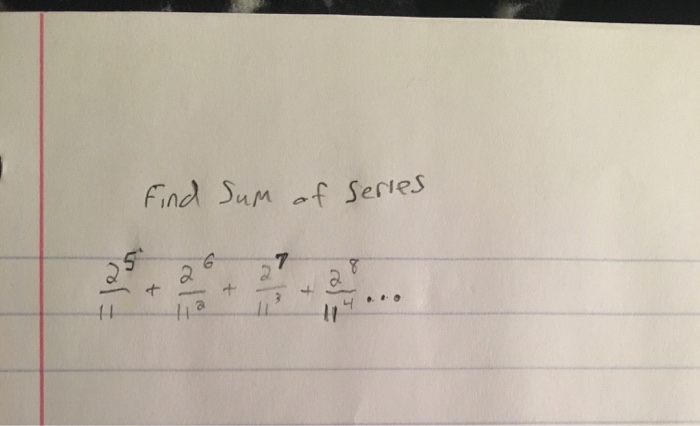 Find Sum of Series
2^5/11 + 2^6/11^2 + 2^7/11^3 + 2^8/11^4 ...